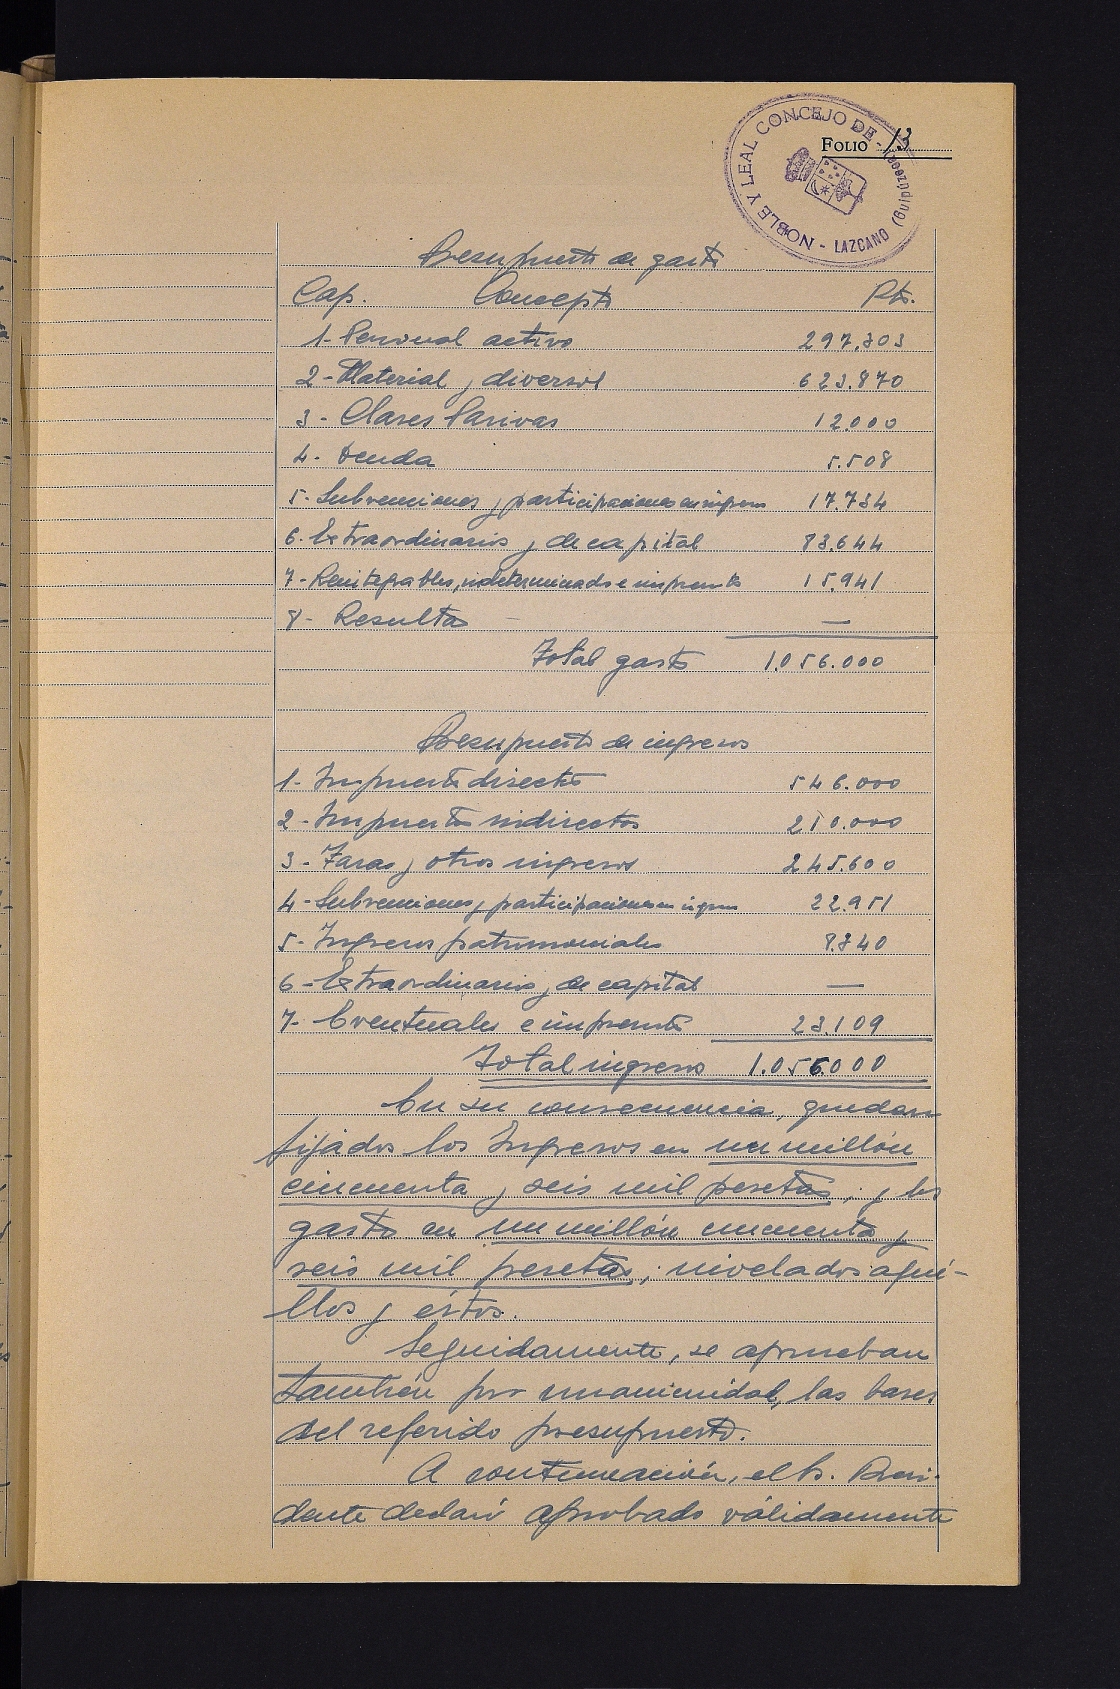 NOBLE Y LEAL CONCEJO DE - LAZCANO (Guipúzcoa)
FOLIO 13
Presupuesto de gastos
Cap. Concepto Pts.
1- Personal activo 297.303
2- Material y diversos 623.870
3- Clases Pasivas 12.000
4- Deuda 5.508
5- Subvenciones y participaciones en ingresos 17.734
6. Extraordinarios y de capital 83.644
7- Reintegrables, indeterminados e imprevistos 15.941
8- Resultas —
Total gastos 1.056.000
Presupuesto de ingresos
1- Impuestos directos 546.000
2- Impuestos indirectos 210.000
3- Tasas y otros ingresos 245.600
4- Subvenciones y participaciones en ingresos 22.951
5- Ingresos patrimoniales 8.340
6- Extraordinarios y de capital —
7- Eventuales e imprevistos 23.109
Total ingresos 1.056.000
En su consecuencia, quedan
fijados los Ingresos en un millón
cincuenta y seis mil pesetas; y los
gastos en un millón cincuenta y
seis mil pesetas; nivelados aqué-
llos y éstos.
Seguidamente, se aprueban
también por unanimidad, las bases
del referido presupuesto.
A continuación, el Sr. Presi-
dente declaró aprobado válidamente